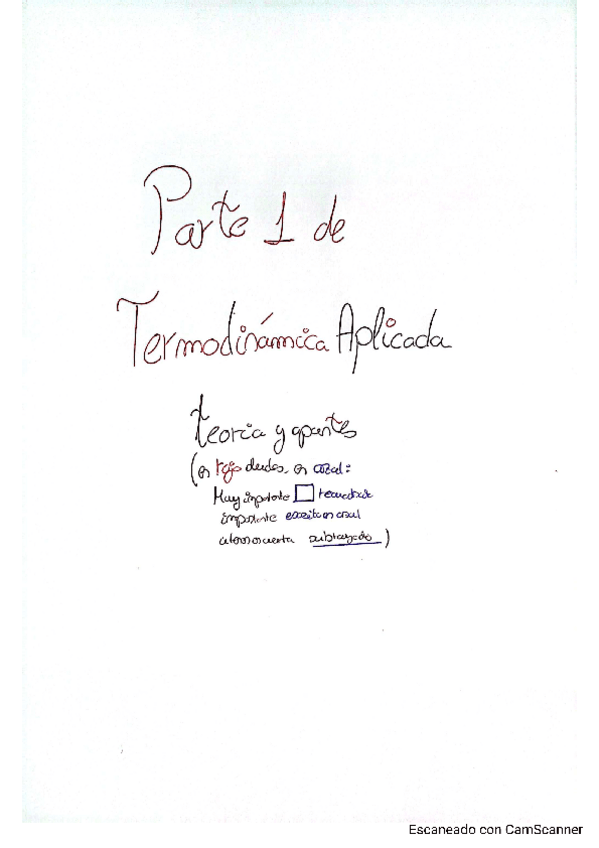 Parte 1 de
Termodinámica Aplicada
teoría y apuntes
(en rojo dudas, en azul:
Muy importante recuadrado
importante escrito en azul
a tener en cuenta subrayado)
Escaneado con CamScanner